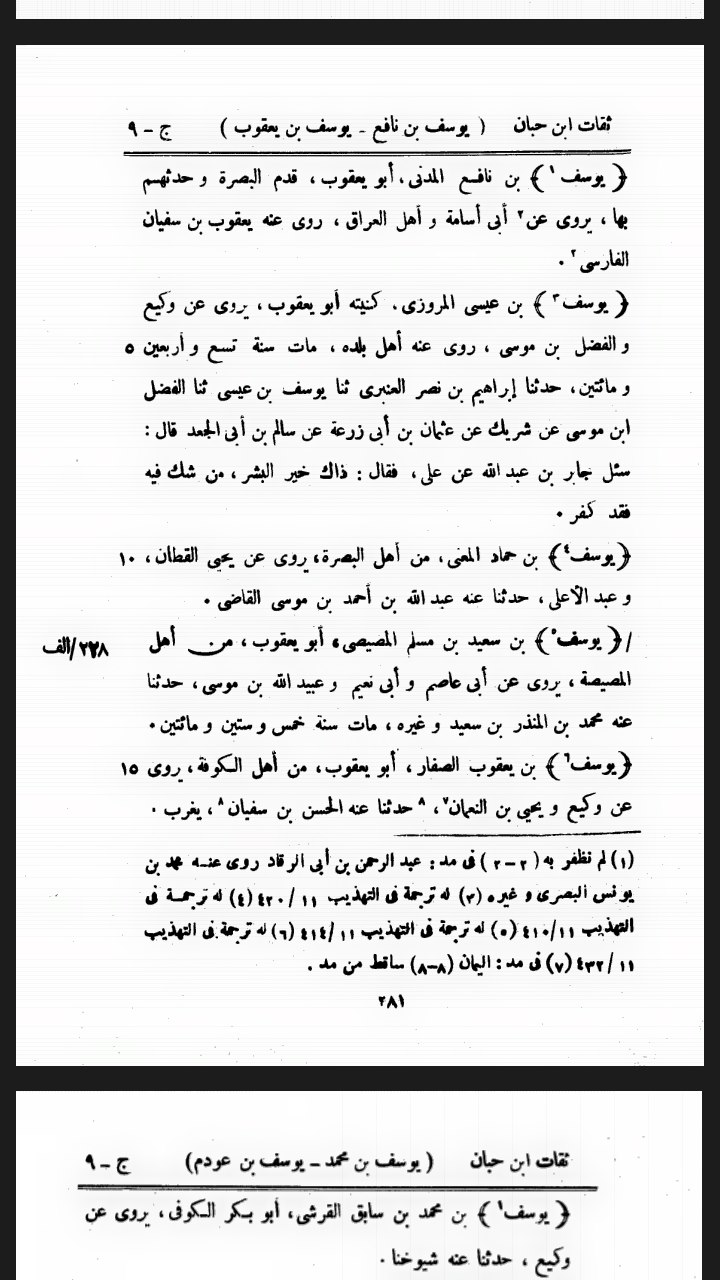 ثقات ابن حبان ( يوسف بن نافع ـ يوسف بن يعقوب ) ج ـ ٩
﴿ يوسف١ ﴾ بن نافع المدنى، أبو يعقوب، قدم البصرة و حدثهم
بها، يروى عن٢ أبى أسامة و أهل العراق، روى عنه يعقوب بن سفيان
الفارسى٢.
﴿ يوسف٣ ﴾ بن عيسى المروزى. كنيته أبو يعقوب، يروى عن وكيع
و الفضل بن موسى، روى عنه أهل بلده، مات سنة تسع و أربعين ٥
و مائتين، حدثنا إبراهيم بن نصر العنبرى ثنا يوسف بن عيسى ثنا الفضل
ابن موسى عن شريك عن عثمان بن أبى زرعة عن سالم بن أبى الجعد قال:
سئل جابر بن عبد الله عن على، فقال: ذاك خير البشر، من شك فيه
فقد كفر.
﴿ يوسف٤ ﴾ بن حماد المعنى، من أهل البصرة، يروى عن يحيى القطان، ١٠
و عبد الأعلى، حدثنا عنه عبد الله بن أحمد بن موسى القاضى.
/ ﴿ يوسف٥ ﴾ بن سعيد بن مسلم المصيصى، أبو يعقوب، من أهل ٢٢٨/الف
المصيصة، يروى عن أبى عاصم و أبى نعيم و عبيد الله بن موسى، حدثنا
عنه محمد بن المنذر بن سعيد و غيره، مات سنة خمس و ستين و مائتين.
﴿ يوسف٦ ﴾ بن يعقوب الصفار، أبو يعقوب، من أهل الكوفة، يروى ١٥
عن وكيع و يحيى بن النعمان٧، ٨ حدثنا عنه الحسن بن سفيان٨، يغرب.
(١) لم نظفر به (٢-٢) فى مد: عبد الرحمن بن أبى الرقاد روى عنه محمد بن
يونس البصرى و غيره (٣) له ترجمة فى التهذيب ١١/٤٢٠ (٤) له ترجمة فى
التهذيب ١١/٤١٠ (٥) له ترجمة فى التهذيب ١١/٤١٤ (٦) له ترجمة فى التهذيب
١١/٤٣٢ (٧) فى مد: اليمان (٨-٨) ساقط من مد.
٢٨١
ثقات ابن حبان ( يوسف بن محمد ـ يوسف بن عودم ) ج ـ ٩
﴿ يوسف١ ﴾ بن محمد بن سابق القرشى، أبو بكر الكوفى، يروى عن
وكيع، حدثنا عنه شيوخنا.